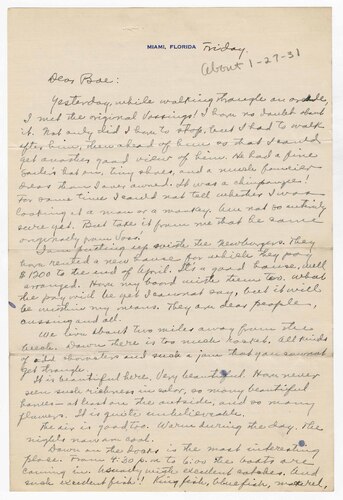 MIAMI, FLORIDA Friday.
About 1-27-31
Dear Boe:
Yesterday, while walking through an
I met the original I have no doubt about
it. Not only did I have to stop, but I had to walk
after him, then ahead of him so that I could
get another good view of him. He had a fine
tiny shoes, and a much funnier
than I ever owned. It was a chimpanzee!
For some time I could not tell whether I was
looking at a man or a monkey. Am not so entirely
sure yet. But take it from me that he came
originally from
I am putting up with the Newburgers. They
have rented a new house for which they pay
$1200 to the end of April. It's a good house, well
arranged. Have my board with them too. What
the price will be yet I cannot say, but it will
be within my means. They are dear people,
cussing and all.
We live about two miles away from the
beach. Down there is too much All kinds
of odd and such a jam that you cannot
get through.
It is beautiful here. Very beautiful. Have never
seen such richness in color, so many beautiful
homes - at least on the outside, and so many
flowers. It is quite unbelievable.
The air is good too. Warm during the day. The
nights now are cool.
Down on the docks is the most interesting
place. From 4:30 p.m to 6:00 the boats are
coming in. Usually with excellent catches. And
such excellent fish! King fish, bluefish,